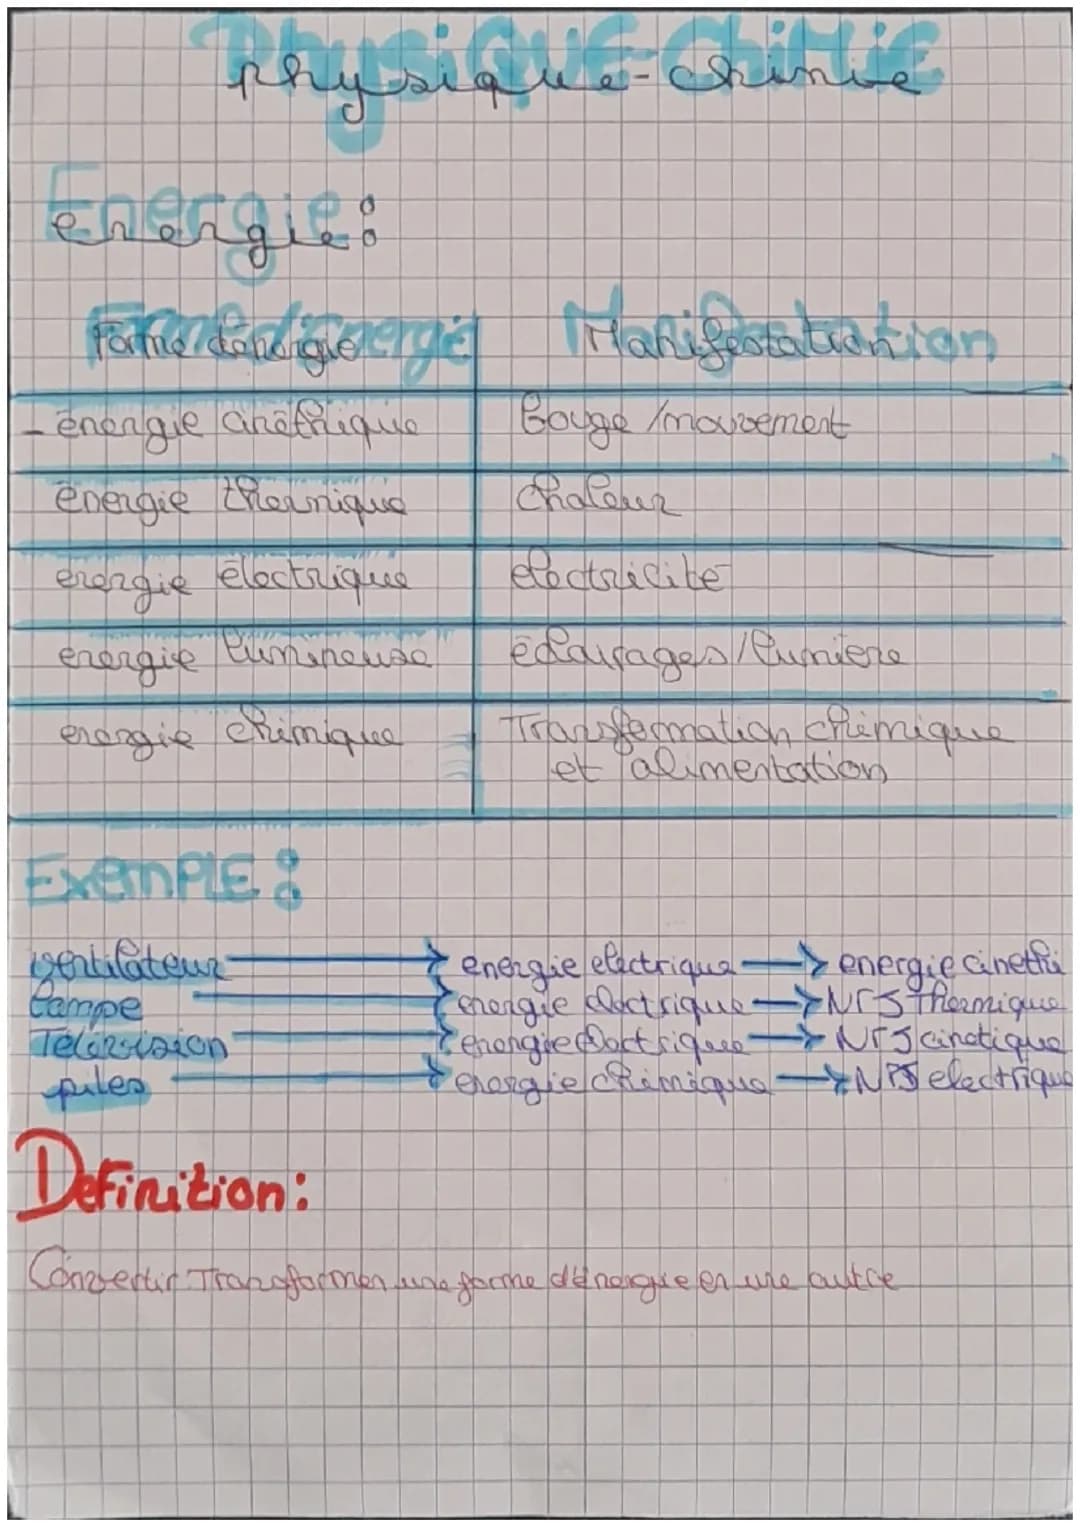 Physique-Chimie
Energie:
Forme d'énergie Manifestation
- énergie cinéthique Bouge /mouvement
énergie thermique chaleur
energie électrique electricité
energie lumineuse éclairages/lumiere
energie chimique Transformation chimique
et alimentation
EXEMPLE:
ventilateur → energie electrique → energie cinethi
lampe → energie electrique → NRJ thermique
Télévision → energie electrique → NRJ cinetique
piles → energie chimique → NRJ electrique
Definition:
Convertir Transformer une forme d'énergie en une autre